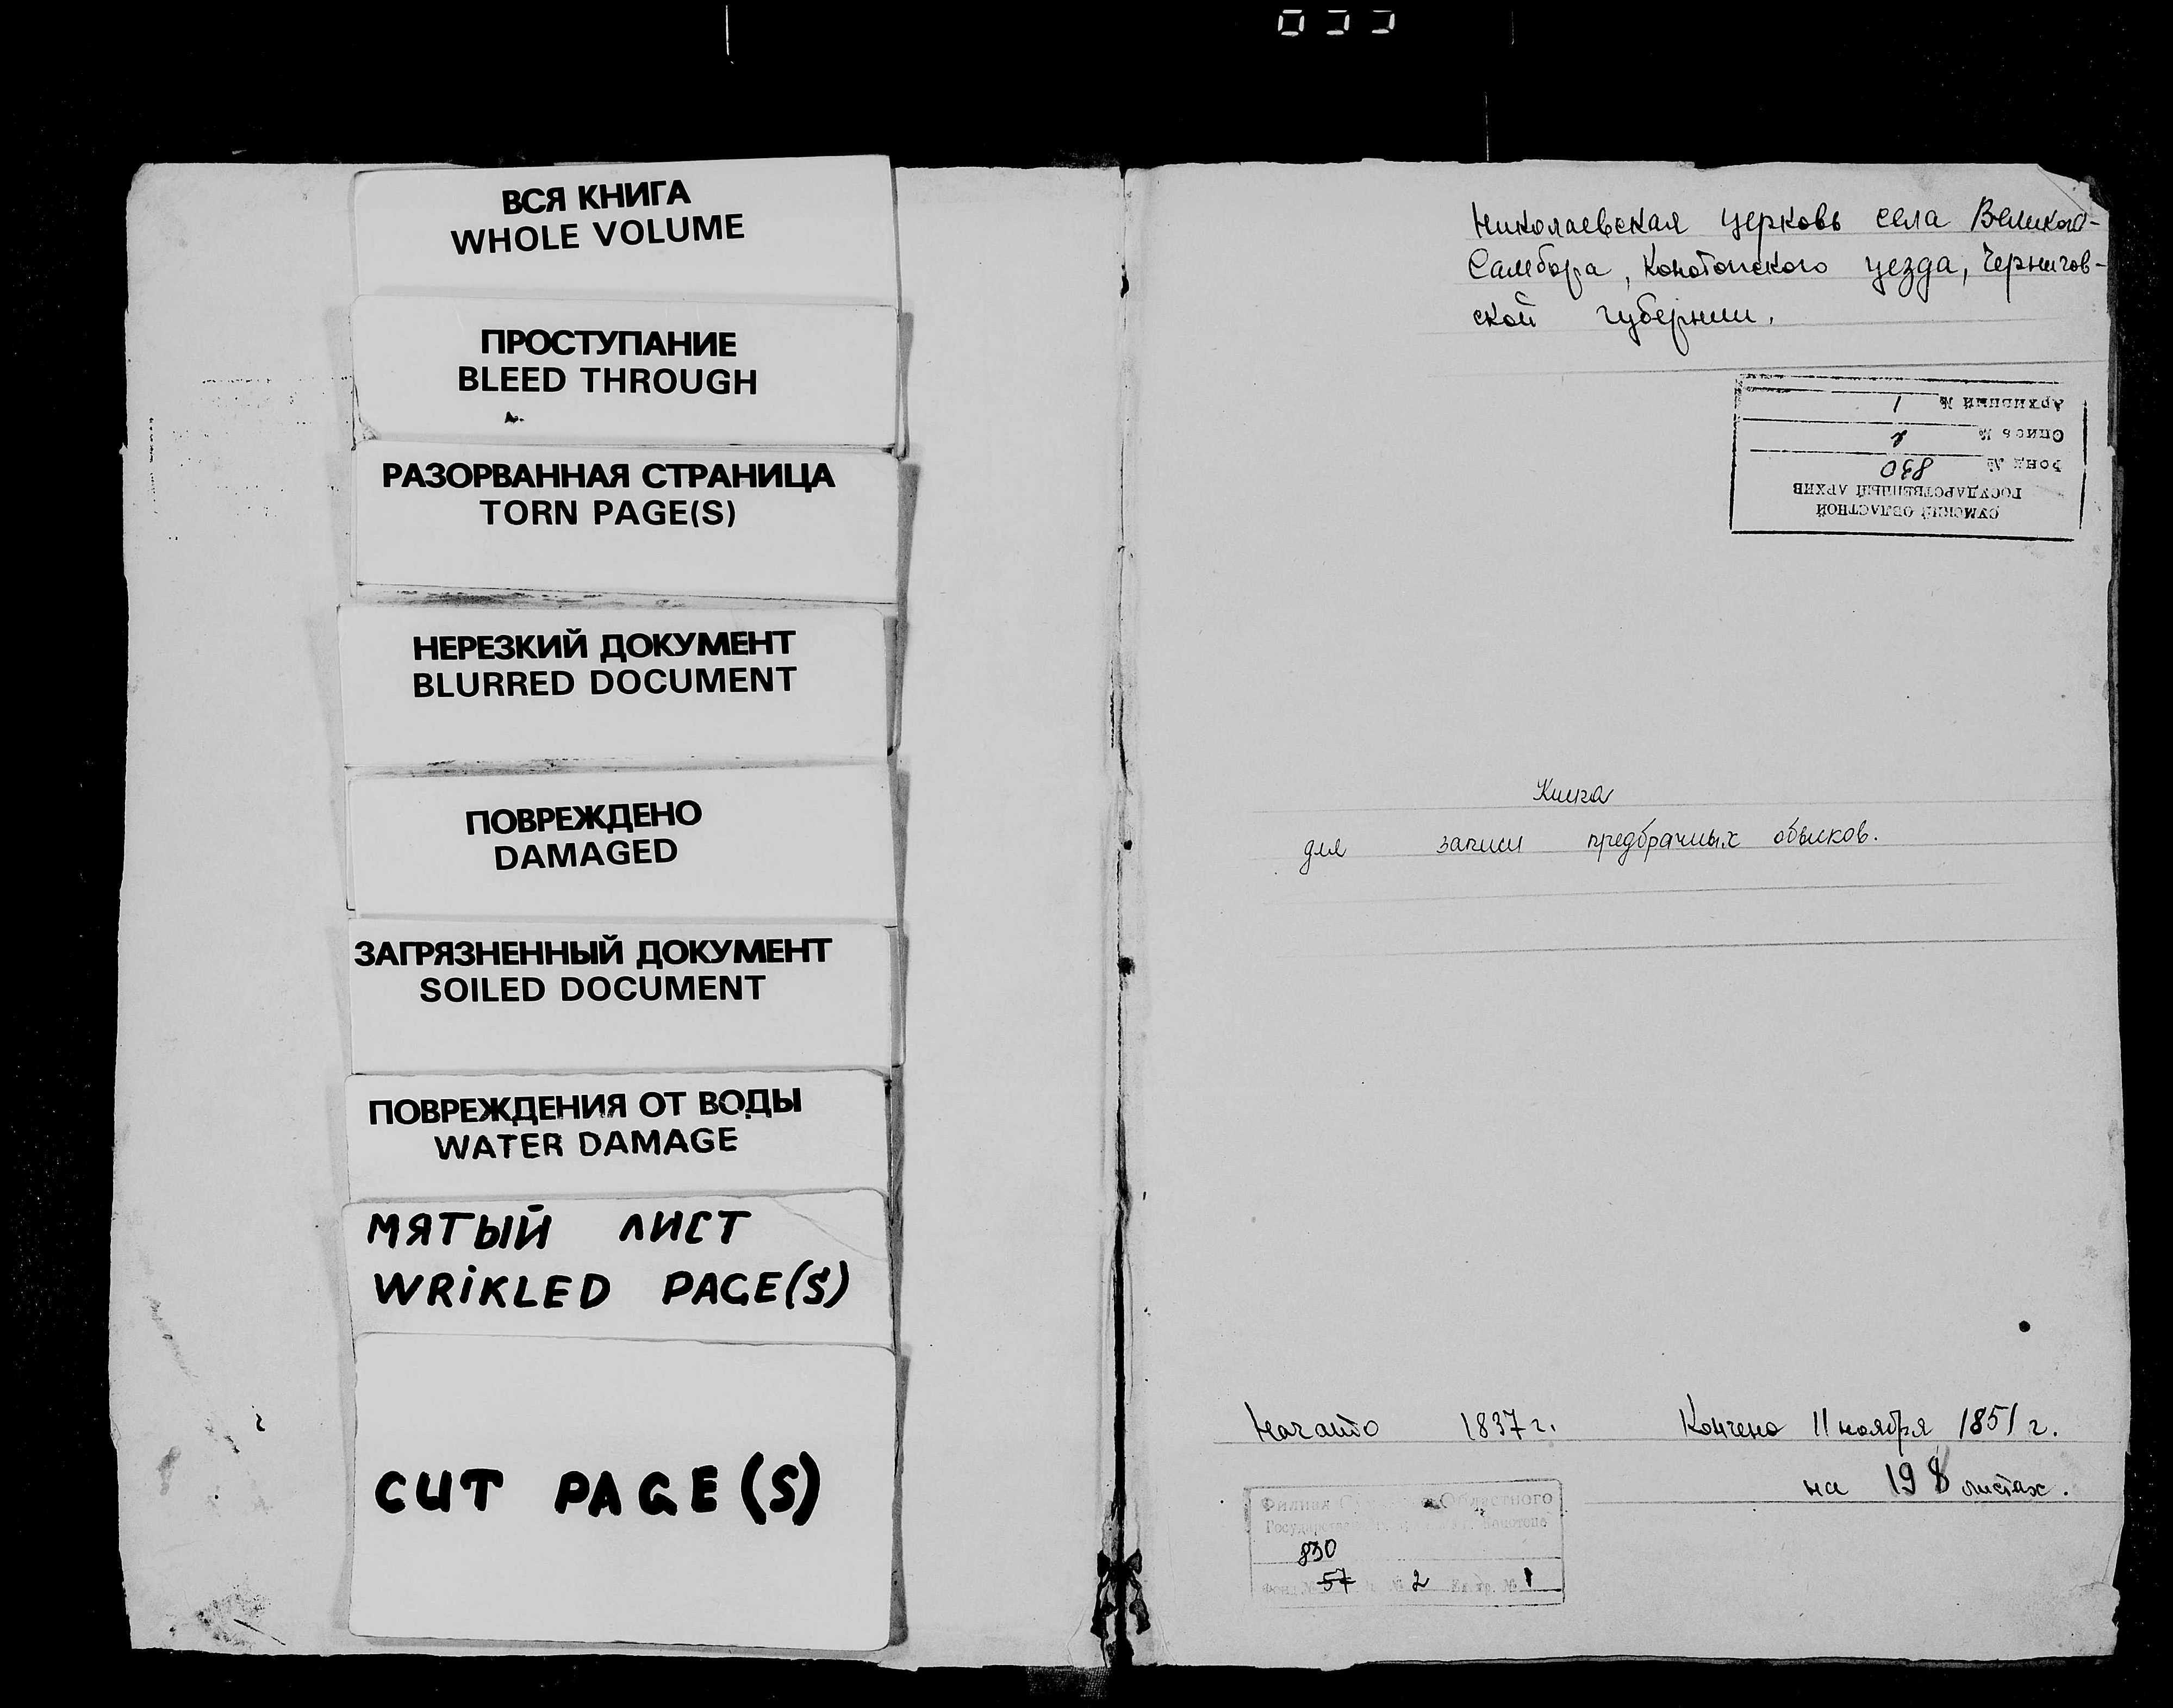 ВСЯ КНИГА
WHOLE VOLUME
ПРОСТУПАНИЕ
BLEED THROUGH
РАЗОРВАННАЯ СТРАНИЦА
TORN PAGE(S)
НЕРЕЗКИЙ ДОКУМЕНТ
BLURRED DOCUMENT
ПОВРЕЖДЕНО
DAMAGED
ЗАГРЯЗНЕННЫЙ ДОКУМЕНТ
SOILED DOCUMENT
ПОВРЕЖДЕНИЯ ОТ ВОДЫ
WATER DAMAGE
МЯТЫЙ ЛИСТ
WRIKLED PAGE(S)
CUT PAGE(S)
Николаевская церковь села Великого-
Самбора, Конотопского уезда, Чернигов-
ской губернии.
СУМСКИЙ ОБЛАСТНОЙ
ГОСУДАРСТВЕННЫЙ АРХИВ
Фонд № 830
Опись № 2
Архивный № 1
Книга
для записи предбрачных обысков.
Начато 1837 г. Кончено 11 ноября 1851 г.
на 198 листах.
Филиал Областного
Конотопе
830
Фонд № 57 № 2 Ед. хр. № 1